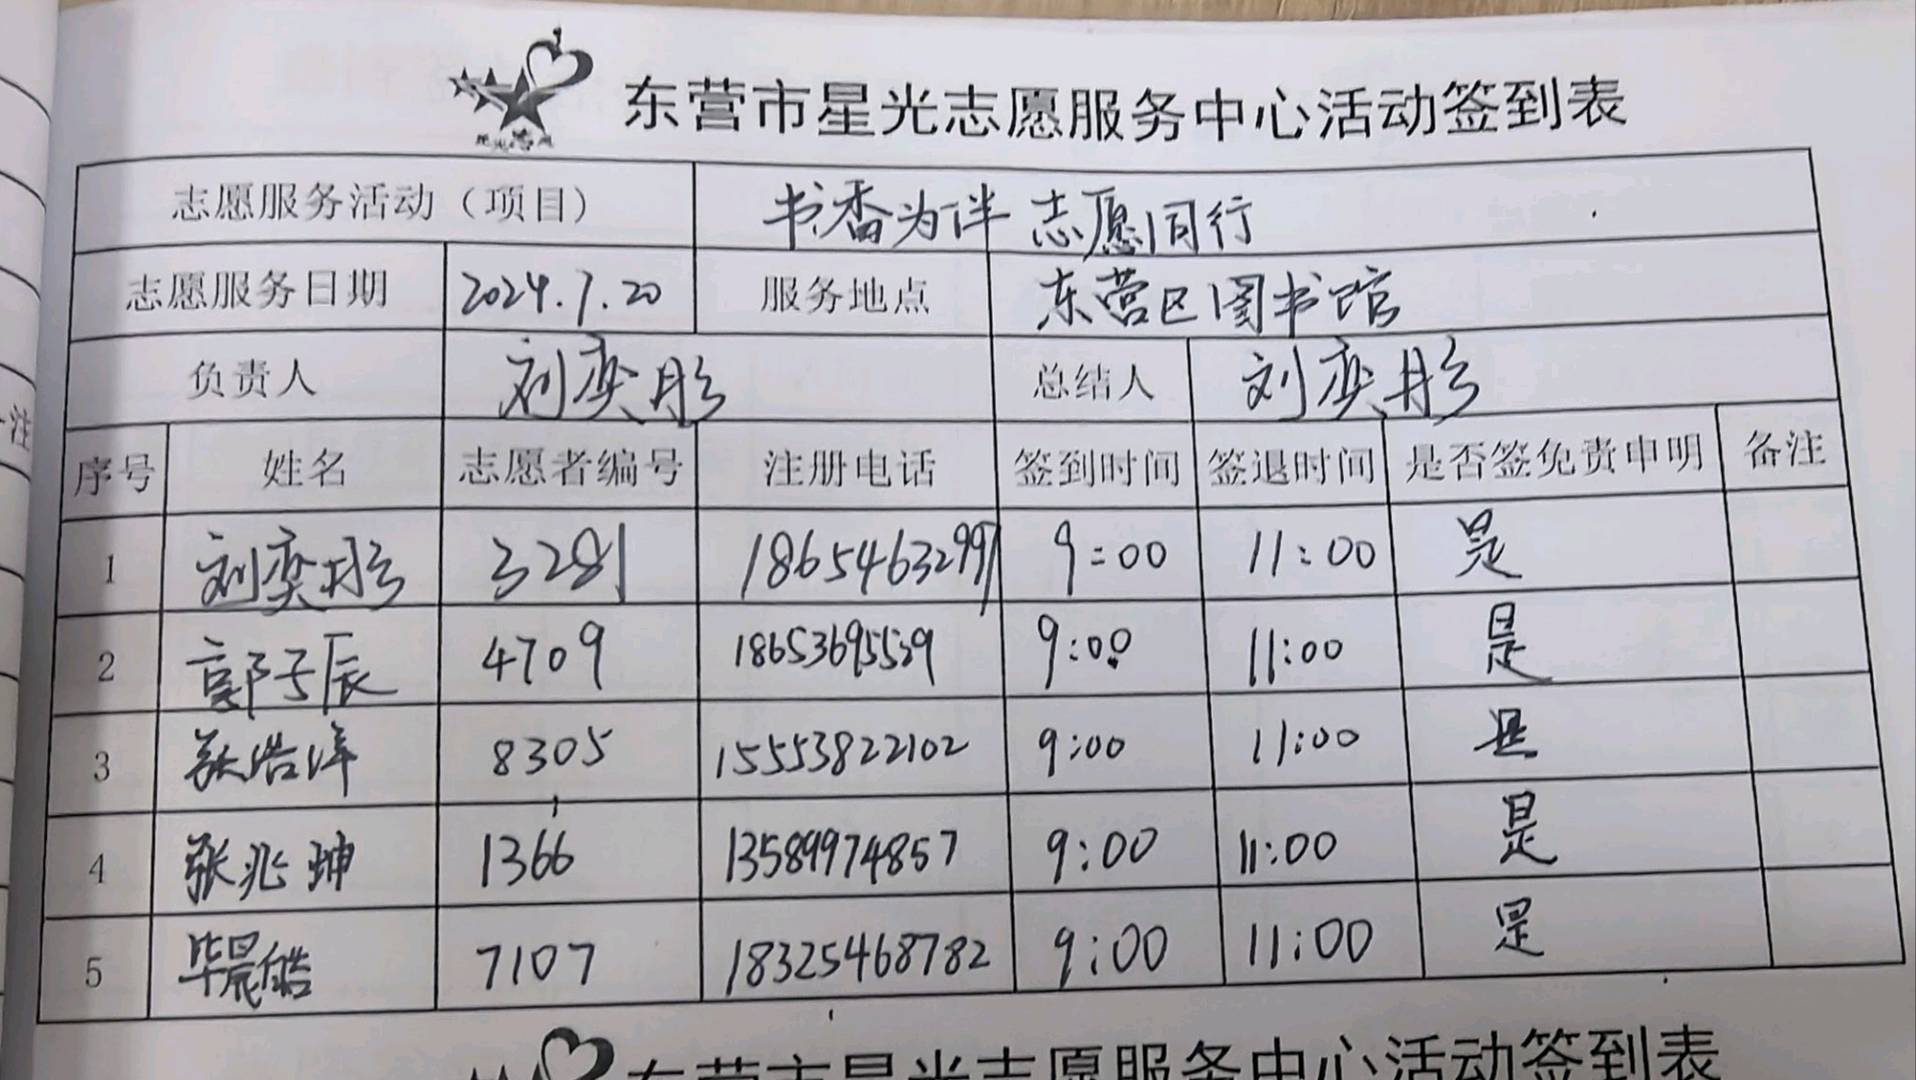 东营市星光志愿服务中心活动签到表
志愿服务活动（项目） 书香为伴 志愿同行
志愿服务日期 2024.7.20 服务地点 东营区图书馆
负责人 刘奕彤 总结人 刘奕彤
序号 姓名 志愿者编号 注册电话 签到时间 签退时间 是否签免责申明 备注
1 刘奕彤 18654632991 9:00 11:00 是
2 郭子辰 4709 18653695539 9:00 11:00 是
3 张浩洋 8305 15553822102 9:00 11:00 是
4 张兆坤 1366 13589974857 9:00 11:00 是
5 毕晨皓 7107 18325468782 9:00 11:00 是
东营市星光志愿服务中心活动签到表
注